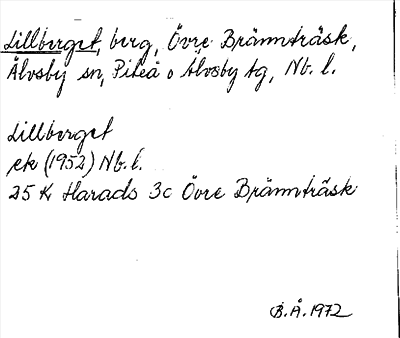 Lillberget, berg, Övre Brännträsk,
Älvsby sn, Piteå o Älvsby tg, Nb. l.
Lillberget
ek (1952) Nb. l.
25 K Harads 3c Övre Brännträsk
B.Å. 1972